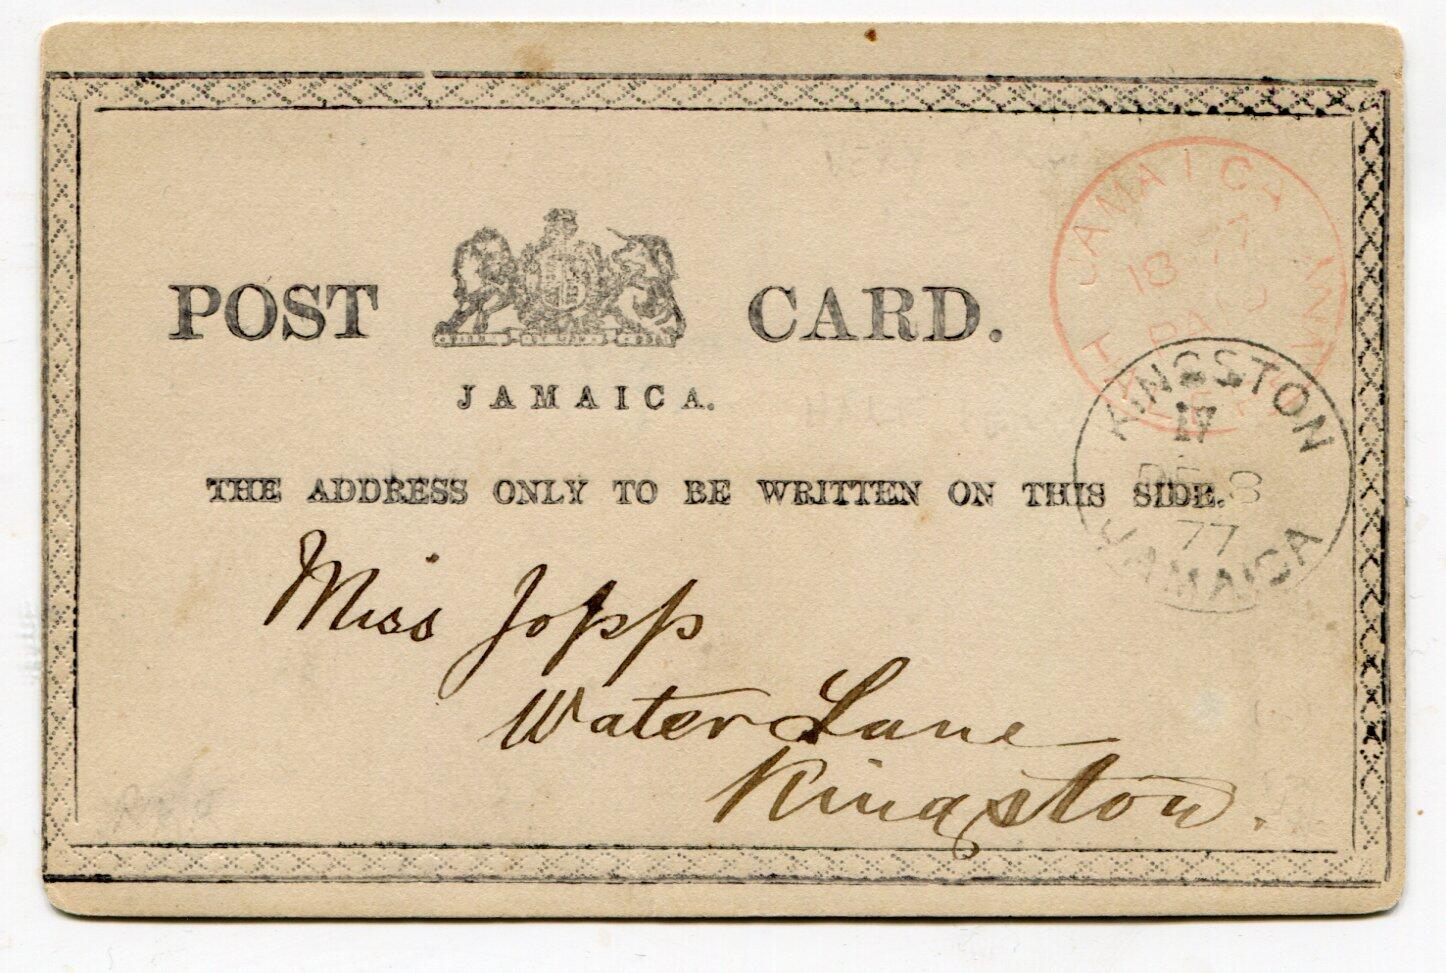 POST CARD.
JAMAICA.
THE ADDRESS ONLY TO BE WRITTEN ON THIS SIDE.
Miss Jopp
Water Lane
Kingston.
JAMAICA
18
KINGSTON
17
77
JAMAICA